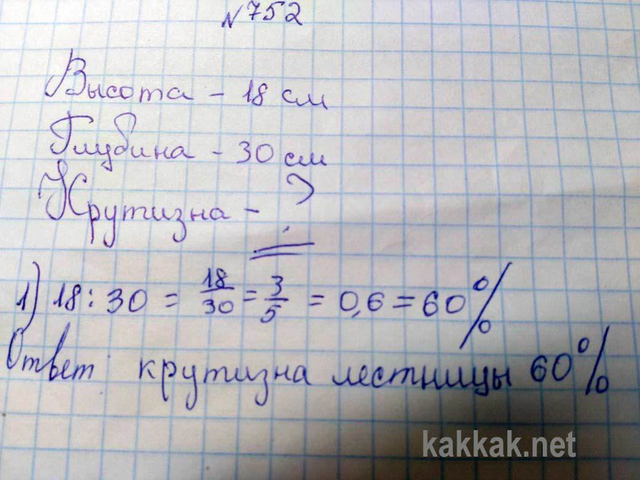 №752
Высота - 18 см
Глубина - 30 см
Крутизна - ?
1) 18 : 30 = 18/30 = 3/5 = 0,6 = 60%
Ответ: крутизна лестницы 60%
kakkak.net